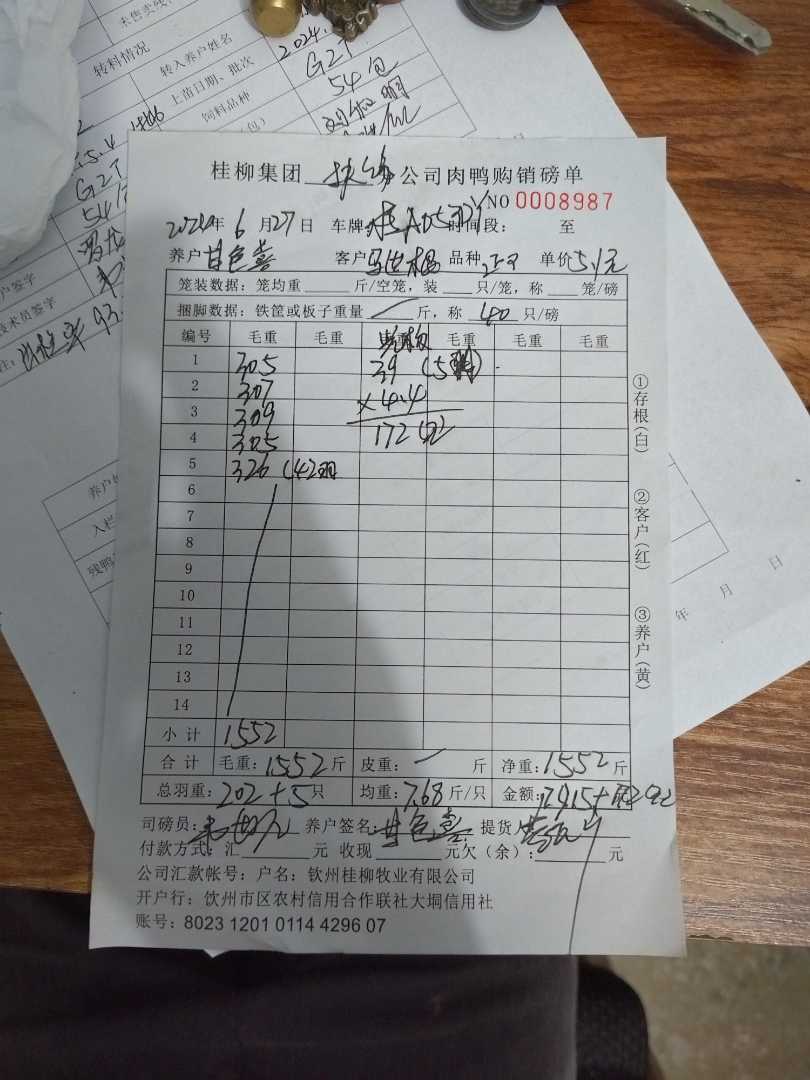 未售卖残
转料情况
转入养户姓名
2024.
上苗日期、批次
G2T
饲料品种
54包
(包)
5.4
G2T
54包
户签字
技术员签字
注:
桂柳集团 公司肉鸭购销磅单
NO 0008987
2024年 6 月 27 日 车牌 时间段: 至
养户 甘色喜 客户 品种 正又 单价 5.1元
笼装数据: 笼均重 斤/空笼, 装 只/笼, 称 笼/磅
捆脚数据: 铁筐或板子重量 斤, 称 40 只/磅
编号 毛重 毛重 毛重 毛重 毛重
1 305 39 (5
2 307 ×4.4
3 309 172
4 305
5 326 (42羽
6
7
8
9
10
11
12
13
14
小 计 1552
合 计 毛重: 1552 斤 皮重: 斤 净重: 1552 斤
总羽重: 202+5 只 均重: 7.68 斤/只 金额: 7915+
司磅员: 养户签名: 甘色喜 提货人
付款方式: 汇 元 收现 元欠(余): 元
公司汇款帐号: 户名: 钦州桂柳牧业有限公司
开户行: 钦州市区农村信用合作联社大垌信用社
账号: 8023 1201 0114 4296 07
①存根(白)
②客户(红)
③养户(黄)
养户姓
入栏
残鸭
年 月 日